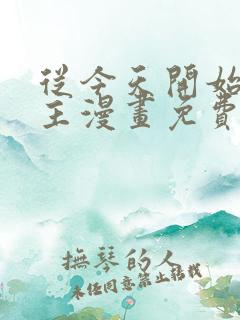 從今天開始
王漫畫免費
撫琴的人
未經同意禁止轉載